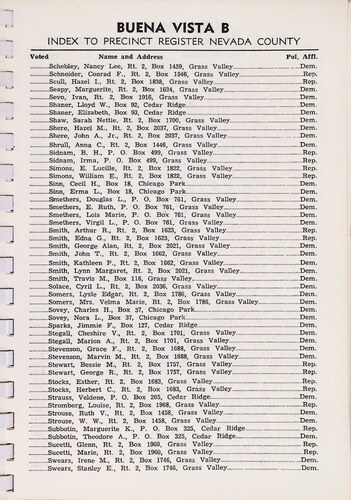 BUENA VISTA B
INDEX TO PRECINCT REGISTER NEVADA COUNTY
Voted Name and Address Pol. Affl.
Schebley, Nancy Lee, Rt. 2, Box 1459, Grass Valley Dem.
Schneider, Conrad F., Rt. 2, Box 1546, Grass Valley Rep.
Scull, Hazel I., Rt. 2, Box 1838, Grass Valley Rep.
Seapy, Marguerite, Rt. 2, Box 1624, Grass Valley Dem.
Sevo, Ivan, Rt. 2, Box 1916, Grass Valley Dem.
Shaner, Lloyd W., Box 92, Cedar Ridge Dem.
Shaner, Elizabeth, Box 93, Cedar Ridge Dem.
Shaw, Sarah Nettie, Rt. 2, Box 1700, Grass Valley Dem.
Shere, Hazel M., Rt. 2, Box 2037, Grass Valley Dem.
Shere, John A., Jr., Rt. 2, Box 2037, Grass Valley Dem.
Shrull, Anna C., Rt. 2, Box 1446, Grass Valley Dem.
Sidnam, B. H., P. O. Box 499, Grass Valley Rep.
Sidnam, Irma, P. O. Box 499, Grass Valley Rep.
Simons, E. Lucille, Rt. 2, Box 1822, Grass Valley Rep.
Simons, William E., Rt. 2, Box 1822, Grass Valley Rep.
Sinn, Cecil H., Box 18, Chicago Park Dem.
Sinn, Erma L., Box 18, Chicago Park Dem.
Smethers, Douglas L., P. O. Box 761, Grass Valley Dem.
Smethers, E. Ruth, P. O. Box 761, Grass Valley Dem.
Smethers, Lois Marie, P. O. Box 761, Grass Valley Dem.
Smethers, Virgil L., P. O. Box 761, Grass Valley Dem.
Smith, Arthur R., Rt. 2, Box 1623, Grass Valley Rep.
Smith, Edna G., Rt. 2, Box 1623, Grass Valley Rep.
Smith, George Alan, Rt. 2, Box 2021, Grass Valley Dem.
Smith, John T., Rt. 2, Box 1662, Grass Valley Dem.
Smith, Kathleen P., Rt. 2, Box 1662, Grass Valley Dem.
Smith, Lynn Margaret, Rt. 2, Box 2021, Grass Valley Dem.
Smith, Travis M., Box 116, Grass Valley Dem.
Solace, Cyril L., Rt. 2, Box 2036, Grass Valley Dem.
Somers, Lysle Edgar, Rt. 2, Box 1786, Grass Valley Dem.
Somers, Mrs. Velma Marie, Rt. 2, Box 1786, Grass Valley Dem.
Sovey, Charles H., Box 37, Chicago Park Dem.
Sovey, Nora L., Box 37, Chicago Park Dem.
Sparks, Jimmie F., Box 127, Cedar Ridge Dem.
Stegall, Cheshire V., Rt. 2, Box 1701, Grass Valley Dem.
Stegall, Marion A., Rt. 2, Box 1701, Grass Valley Dem.
Stevenson, Grace F., Rt. 2, Box 1688, Grass Valley Dem.
Stevenson, Marvin M., Rt. 2, Box 1688, Grass Valley Dem.
Stewart, Bessie M., Rt. 2, Box 1757, Grass Valley Rep.
Stewart, George R., Rt. 2, Box 1757, Grass Valley Rep.
Stocks, Esther, Rt. 2, Box 1683, Grass Valley Rep.
Stocks, Herbert C., Rt. 2, Box 1683, Grass Valley Rep.
Strauss, Veldene, P. O. Box 205, Cedar Ridge Dem.
Stromberg, Louise, Rt. 2, Box 1968, Grass Valley Rep.
Strouse, Ruth V., Rt. 2, Box 1458, Grass Valley Dem.
Strouse, W. W., Rt. 2, Box 1458, Grass Valley Dem.
Subbotin, Marguerite K., P. O. Box 325, Cedar Ridge Rep.
Subbotin, Theodore A., P. O. Box 325, Cedar Ridge Dem.
Sucetti, Glenn, Rt. 2, Box 1960, Grass Valley Rep.
Sucetti, Marie, Rt. 2, Box 1960, Grass Valley Rep.
Swears, Irene M., Rt. 2, Box 1746, Grass Valley Dem.
Swears, Stanley E., Rt. 2, Box 1746, Grass Valley Dem.